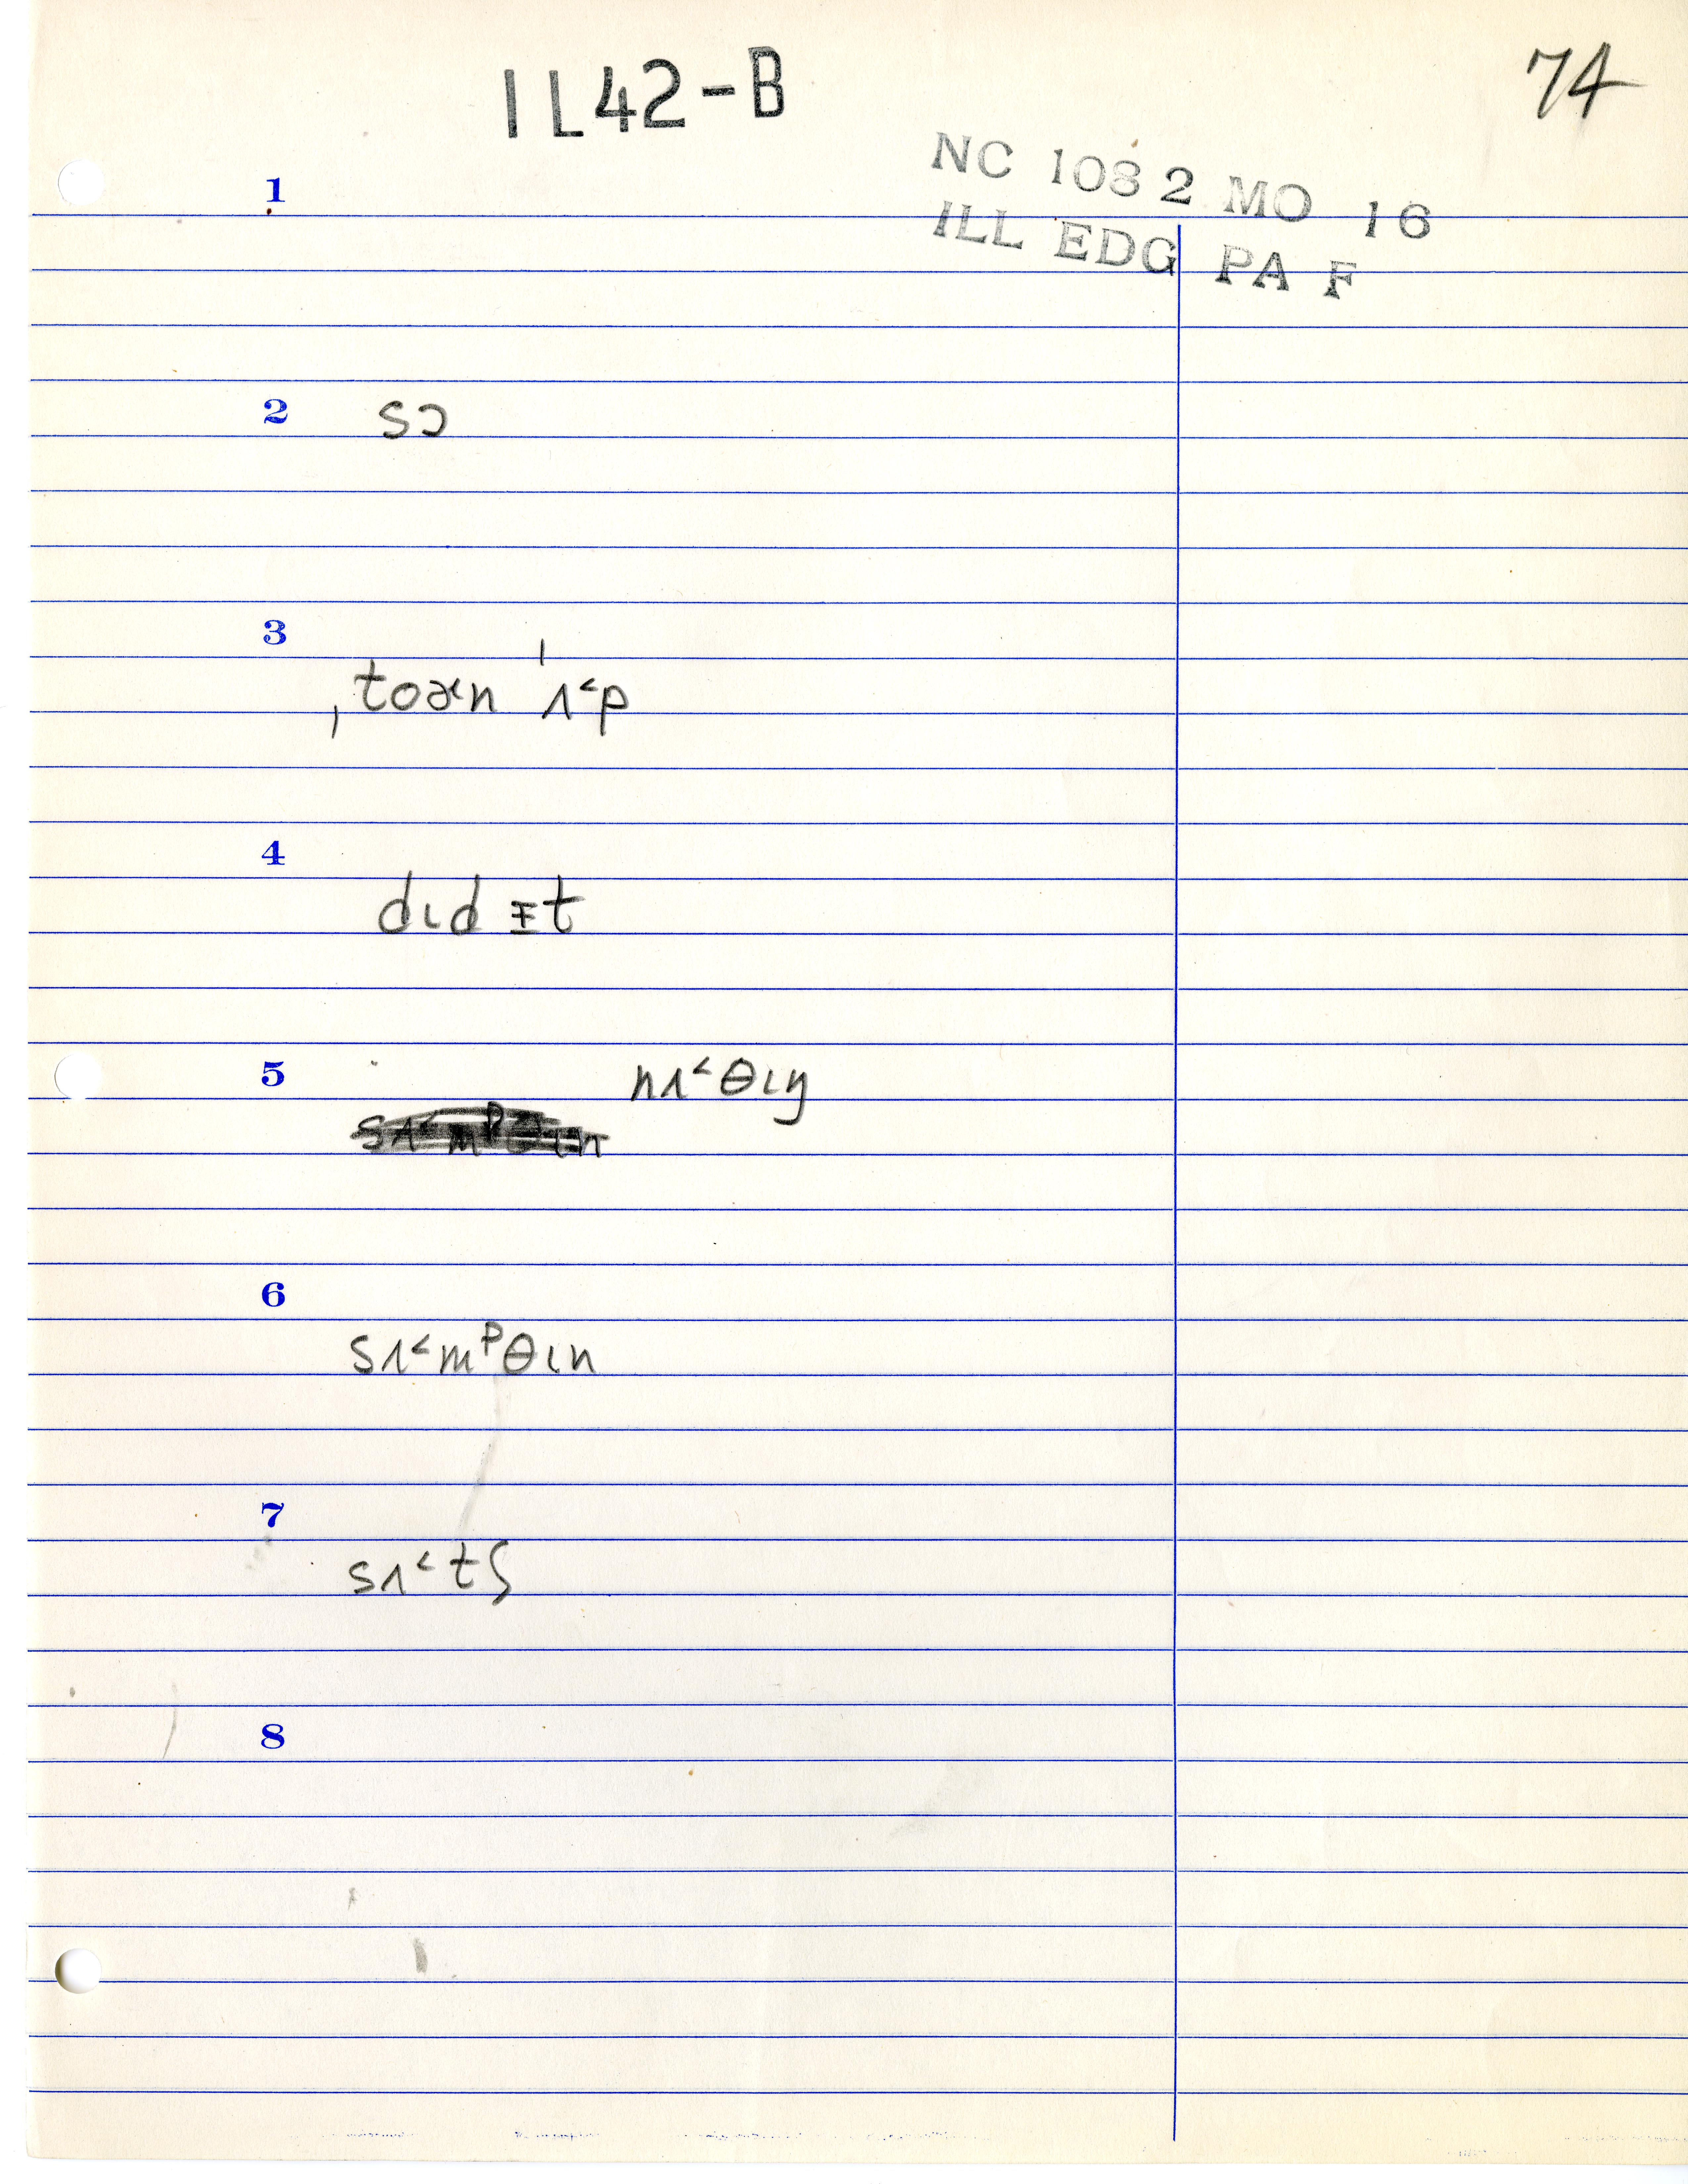 IL42-B
74
NC 1082 MO 16
ILL EDG PA F
1
2 sɔ
3
ˌtoɚn ˈʌ˂p
4
dɩd ɪt
5 nʌ˂θɩŋ
sʌ˂mᵖθɩn
6
sʌ˂mᵖθɩn
7
sʌ˂tʃ
8